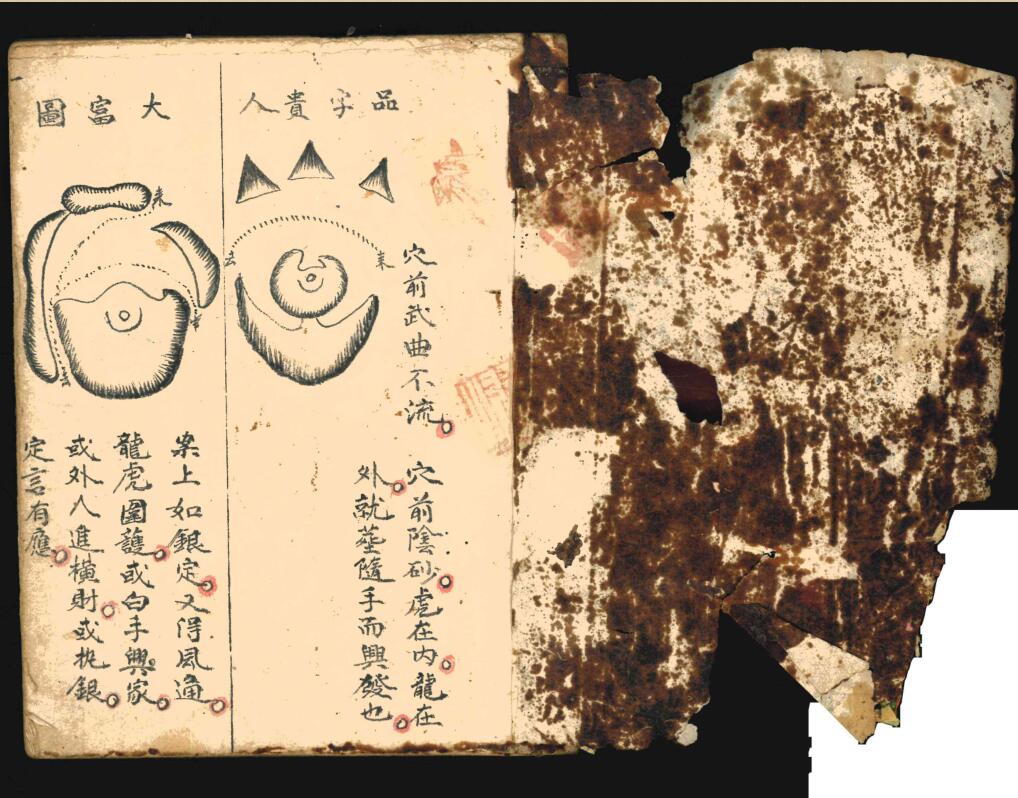 品字貴人
来
去
穴前武曲不流。穴前陰砂。虎在内。龍在
外。就塟隨手而興發也。
大富圖
来
去
案上如銀定。又得風通。
龍虎圍護。或白手興家。
或外人進橫財。或銀。
定言有應。